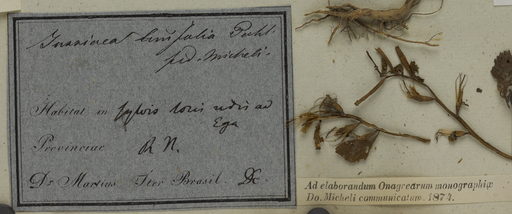 Jussiaea linifolia Vahl
fid. Micheli.
Habitat in sylvis locis udis ad
Ega
Provinciae R N.
Dr Martius Iter Brasil.
Ad elaborandum Onagrearum monographiæ
Do. Micheli communicatum. 1874.